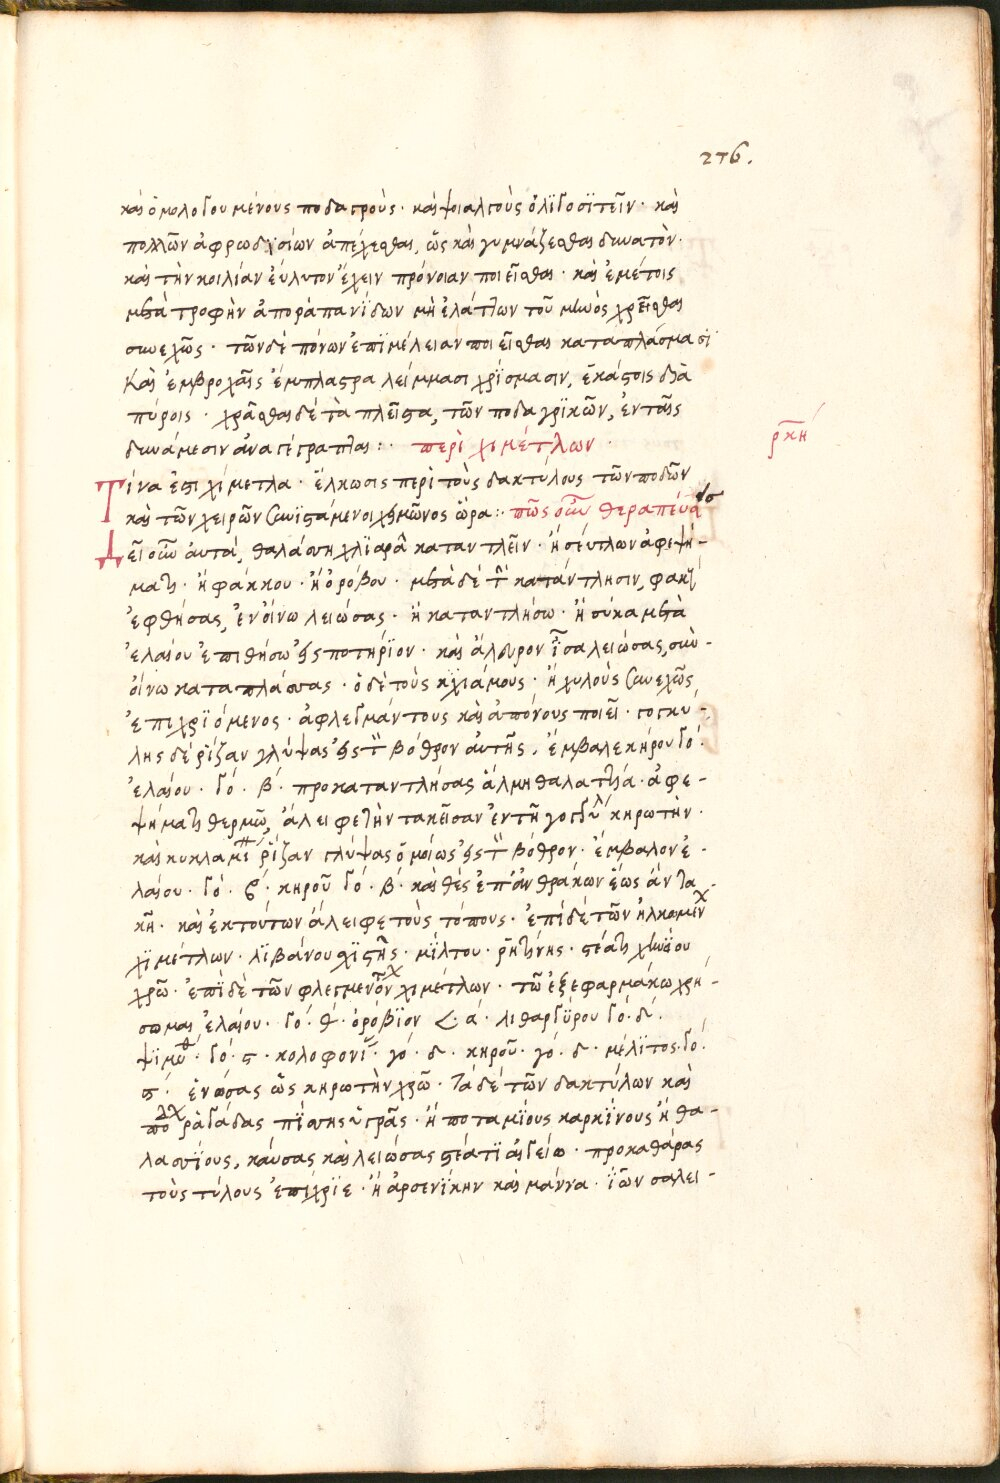 276.
καὶ ὁμολογουμένους ποδαγρούς · καὶ ψοιαλγοὺς ὀλϊγοσϊτεῖν · καὶ
πολλῶν ἀφρωδισίων ἀπέχεσθαι, ὡς καὶ γυμνάζεσθαι δυνατὸν ·
καὶ τὴν κοιλίαν εὔλυτον ἔχειν πρόνοιαν ποιεῖσθαι · καὶ ἐμέτοις
μετὰ τροφὴν ἀπο ῥαπανΐδων μὴ ἐλάττων τοῦ μηνὸς χρεῖσθαι
συνεχῶς · τῶν δὲ πόνων ἐπϊμέλειαν ποιεῖσθαι καταπλάσμασϊ
καὶ ἐμβροχαῖς ἐμπλαστρα λείμμασι χρΐσμασιν, ἑκάστοις διὰ
πύροις · χρᾶσθαι δὲ τὰ πλεῖστα, τῶν ποδαγρϊκῶν, ἐν ταῖς
δυνάμεσιν ἀναγέγραπται :· περὶ χιμέτλων ·
ρκή
Τίνα ἐστι χίμετλα · ἕλκωσις περὶ τοὺς δακτύλους τῶν ποδῶν
καὶ τῶν χειρῶν συνϊστάμενοι χειμῶνος ὥρα :· πῶς οὖν θεραπεύσ
Δεῖ οὖν ἀυτὰ, θαλάσση χλϊαρᾶ καταντλεῖν · ἢ σεύτλων ἀφεψή-
ματι · ἢ φάκκου · ἢ ὀρόβου · μετὰ δὲ τὴν κατάντλησιν, φακῆ
ἐφθήσας, ἐν οἴνω λειώσας · ἢ καταντλήσω · ἢ σύκα μετὰ
ἐλαίου ἐπιθήσω εἰς ποτηρΐον · καὶ ἄλευρον ἶσα λειώσας, σὺν
οἴνω καταπλάσσας · ὁ δὲ τοὺς κϊχιάμους · ἢ χυλοὺς συνεχῶς
ἐπιχρϊόμενος · ἀφλεγμάντους καὶ ἀπόνους ποιεῖ · γογκύ-
λης δὲ ῥΐζαν γλύψας εἰς τὸν βόθρον ἀυτῆς · ἔμβαλε κήρου γο ·
ἐλαίου · γο · β · προκαταντλήσας ἅλμη θαλαττία · ἀφε-
ψήματι θερμῶ, ἄλειφε τὴν τακεῖσαν ἐν τῆ γογγύλ κηρωτὴν ·
καὶ κυκλαμί ῥΐζαν γλύψας ὁμοίως εἰς τὸν βόθρον · ἔμβαλον ἐ-
λαίου · γο · ϛ · κηροῦ γο · β · καὶ θὲς ἐπ' ἀνθράκων ἕως ἂν τα-
κῆ · καὶ ἐκ τούτων ἄλειφε τοὺς τόπους · ἐπί δὲ τῶν ἡλκομέν
χϊμέτλων · λϊβάνου σχϊστῆς · μΐλτου · ῥητΐνης · στέατι χηνΐου
χρῶ · ἐπϊ δὲ τῶν φλεγμενόν χιμέτλων · τῶ ἑξεφαρμάκω χρή-
σωμαι, ἐλαίου · γο · θ · ὀροβϊον < · α · λιθαργΰρου γο · δ ·
ψϊμυθ · γο · ϛ · κολοφονί · γο · δ · κηροῦ · γο · δ · μέλϊτος · γο ·
ϛ · ἑνώσας ὡς κηρωτὴν χρῶ · Τὰ δὲ τῶν δακτύλων καὶ
ῥαγάδας πΐσσης ὑγρᾶς · ἢ ποταμΐους καρκίνους ἢ θα-
λασσΐους, καύσας καὶ λειώσας στέατϊ αἰγείω · προκαθάρας
τοὺς τύλους ἐπίχρϊε · ἢ ἀρσενϊκὴν καὶ μάννα · ϊῶν σαλει-